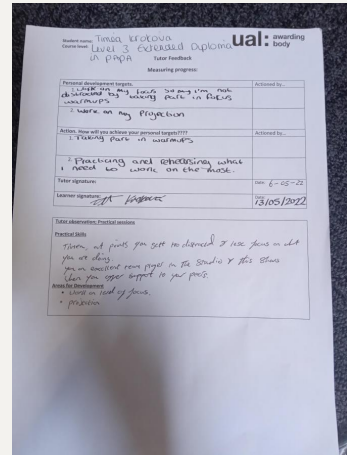 Student name: Timea Krokova
Course level: Level 3 Extended Diploma
in PAPA
ual: awarding
body
Tutor Feedback
Measuring progress:
Personal development targets.
Actioned by...
1. Work on my focus so my i'm not
distracted by taking part in focus
warmups
2. Work on my Projection
Action. How will you achieve your personal targets????
Actioned by...
1. Taking part in warmups
2. Practicing and rehearsing what
I need to work on the most.
Tutor signature:
Date: 6-05-22
Learner signature:
Date:
13/05/2022
Tutor observation: Practical sessions
Practical Skills
Timea, at points you get distracted & lose focus on what
you are doing.
you an excellent team player in the Studio & this Shows
when you offer support to your peers.
Areas for Development:
• Work on level of focus.
• projection